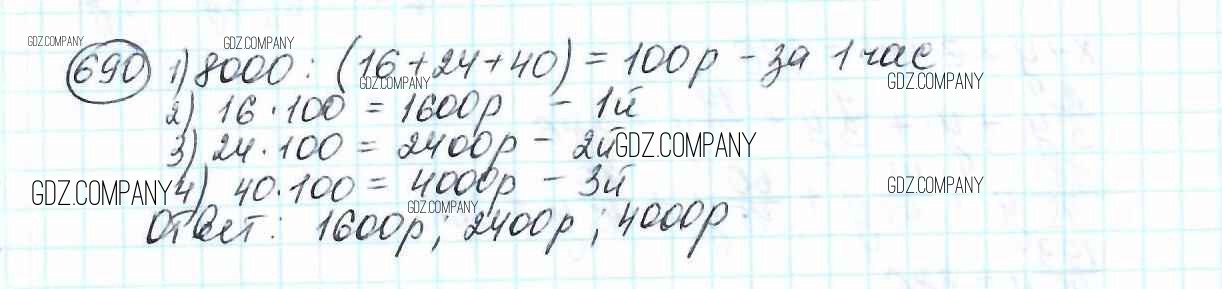 GDZ.COMPANY GDZ.COMPANY
690 1) 8000 : (16+24+40) = 100р - за 1 час
GDZ.COMPANY GDZ.COMPANY
2) 16 · 100 = 1600р - 1й
3) 24 · 100 = 2400р - 2й GDZ.COMPANY
GDZ.COMPANY 4) 40 · 100 = 4000р - 3й GDZ.COMPANY
GDZ.COMPANY
Ответ: 1600р; 2400р; 4000р.